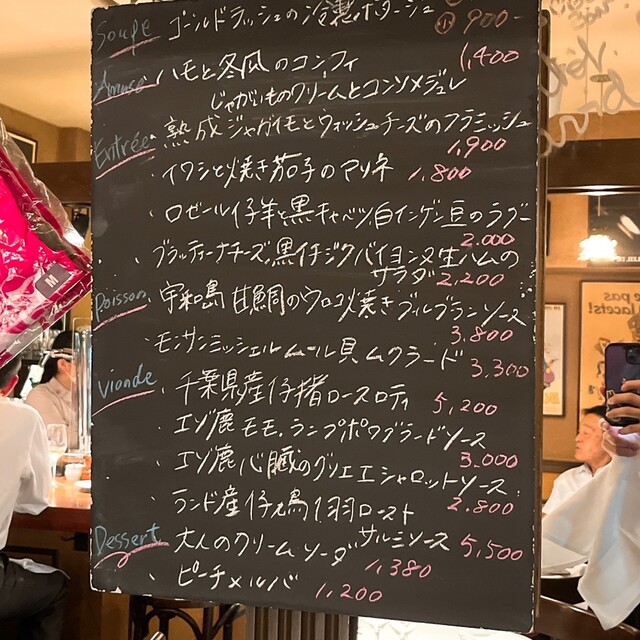 Soupe ゴールドラッシュの冷製ポタージュ
900-
Amuse ハモと冬瓜のコンフィ 1,400
じゃがいものクリームとコンソメジュレ
Entrée 熟成ジャガイモとウォッシュチーズのフラミッシュ
1,900
・イワシと焼き茄子のマリネ 1,800
・ロゼール仔羊と黒キャベツ白インゲン豆のラグー
2,000
・ブラッティーナチーズ、黒イチジク バイヨンヌ生ハムの
サラダ 2,200
Poisson ・宇和島甘鯛のウロコ焼きブルブランソース
3,800
・モンサンミッシェルムール貝ムクラード 3,300
Viande ・千葉県産仔猪ロースロティ 5,200
・エゾ鹿モモ、ランプポワブラードソース
3,000
・エゾ鹿心臓のグリエエシャロットソース
2,800
・ランド産仔鳩1羽ロースト
サルミソース 5,500
Dessert ・大人のクリームソーダ
1,380
・ピーチメルバ 1,200
M
pas
lacets!